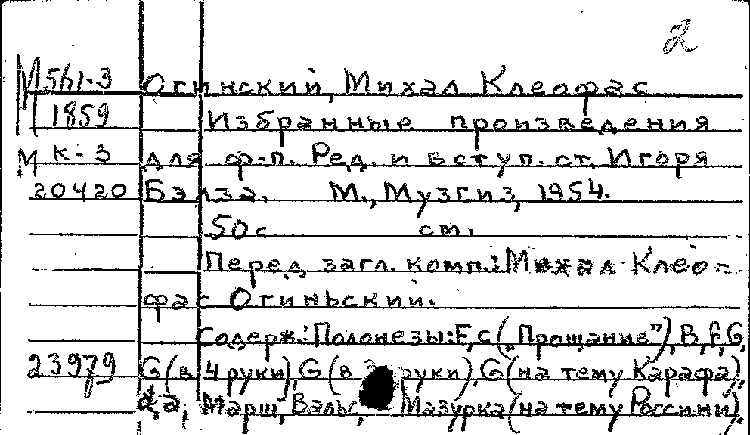 2
М 561-3 Огинский, Михал Клеофас
1859 Избранные произведения
М к-3 для ф-п. Ред. и вступ. ст. Игоря
20420 Бэлза. М., Музгиз, 1954.
50с ст.
Перед загл. комп.: Михал Клео-
фас Огиньский.
Содерж.: Полонезы: F, c („Прощание"), B, f, G,
23979 G (в 4 руки), G (в руки), G (на тему Карафа),
d, a, Марш, Вальс, Мазурка (на тему Россини),